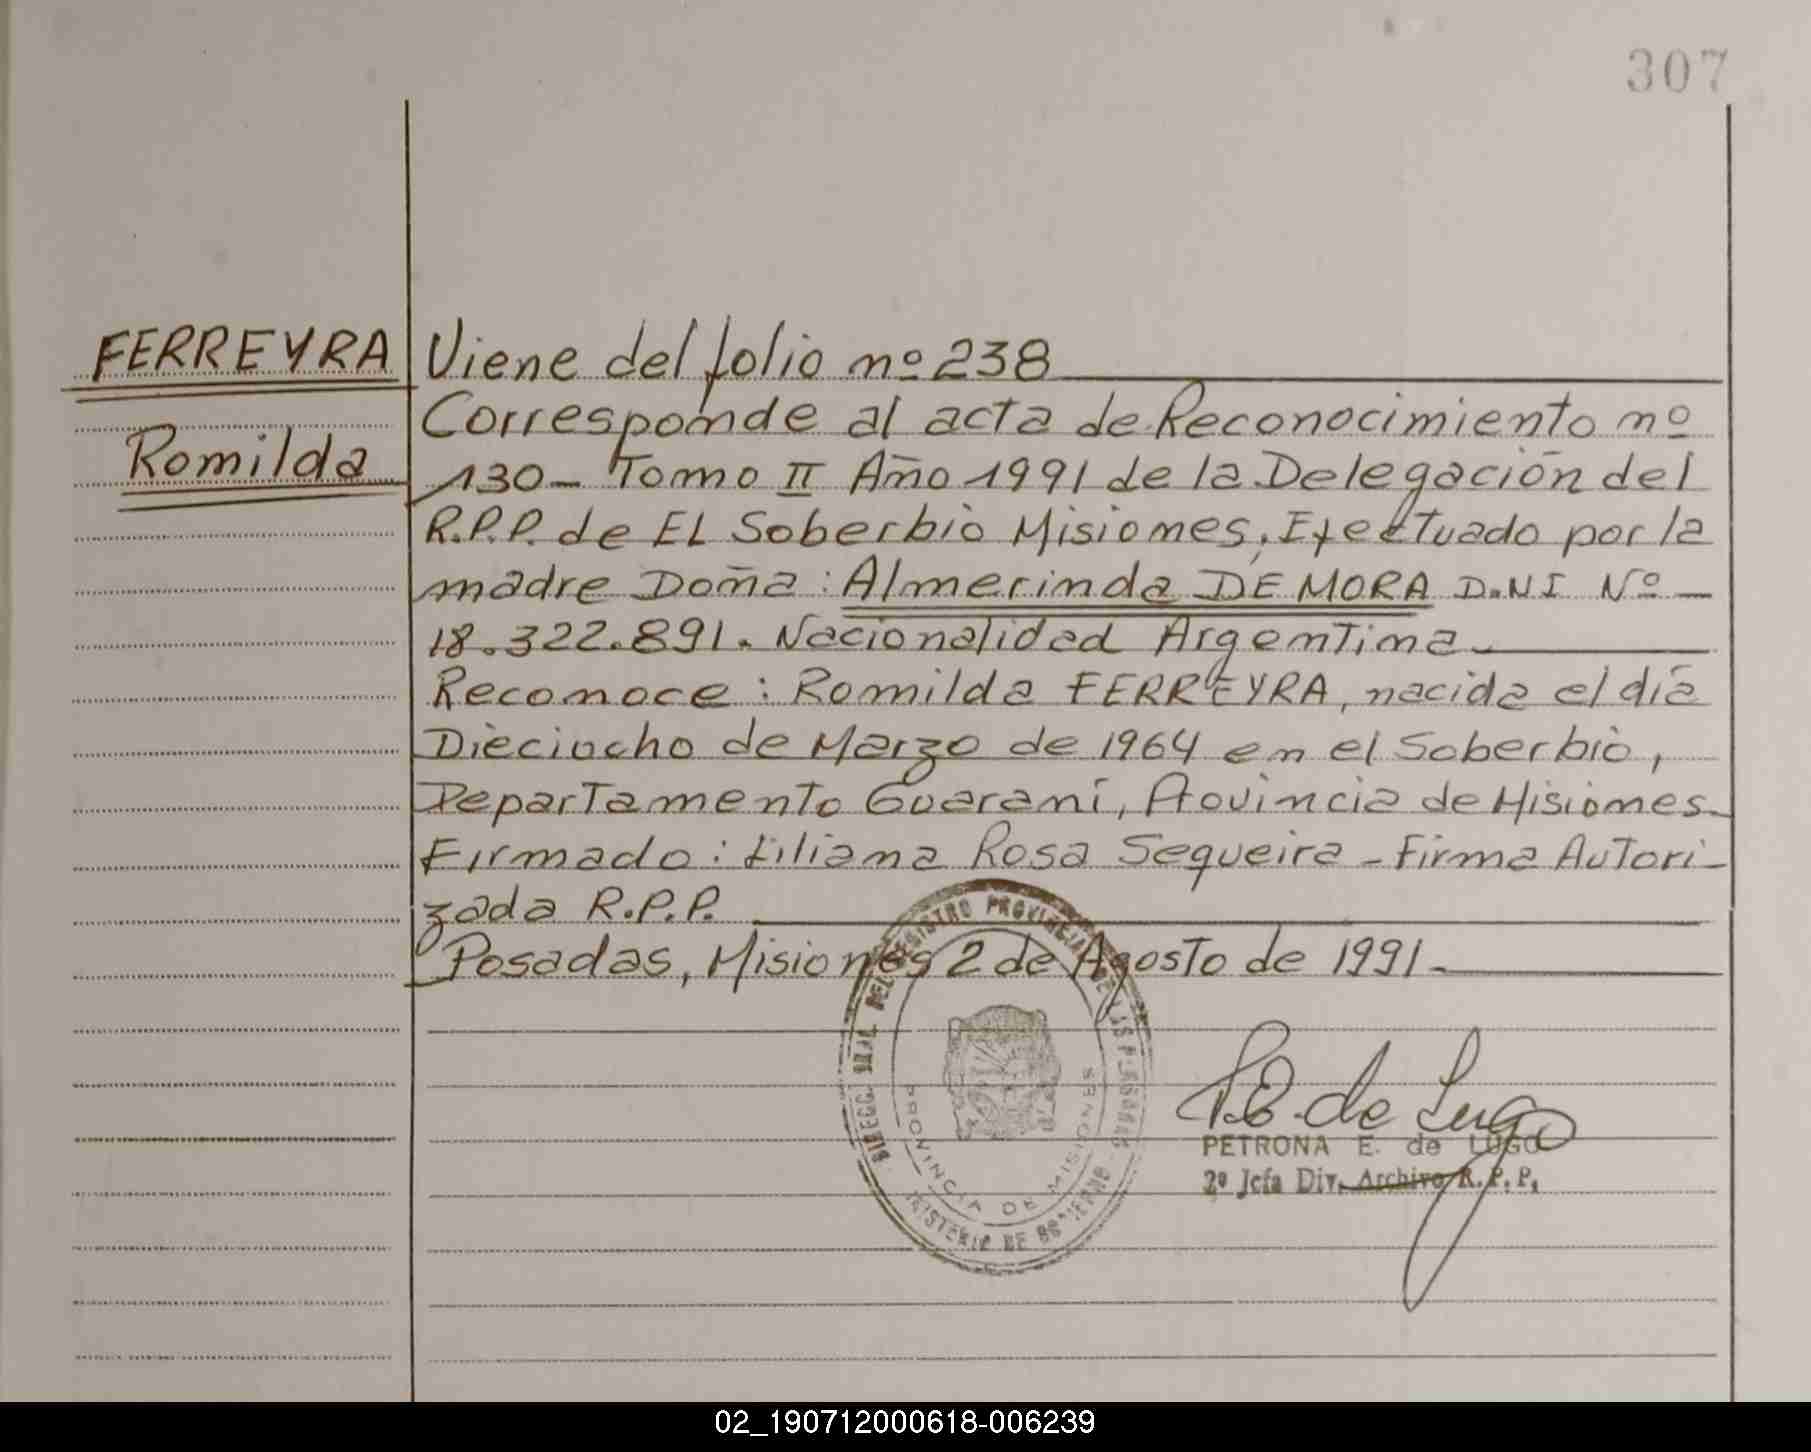 307
FERREYRA
Romilda
Viene del folio nº 238
Corresponde al acta de Reconocimiento nº
130 - Tomo II Año 1991 de la Delegación del
R.P.P. de EL Soberbio Misiones, Efectuado por la
madre Doña: Almerinda DE MORA D.NI Nº -
18.322.891. Nacionalidad Argentina -
Reconoce: Romilda FERREYRA, nacida el día
Dieciocho de Marzo de 1964 en el Soberbio,
Departamento Guaraní, Provincia de Misiones
Firmado: Liliana Rosa Sequeira - Firma Autori-
zada R.P.P.
Posadas, Misiones 2 de Agosto de 1991.-
DIRECC. GRAL. DEL REGISTRO PROVINCIAL DE LAS PERSONAS
PROVINCIA DE MISIONES
MINISTERIO DE GOBIERNO
P.E. de Lugo
PETRONA E. de LUGO
2º Jefa Div. Archivo R.P.P.
02_190712000618-006239